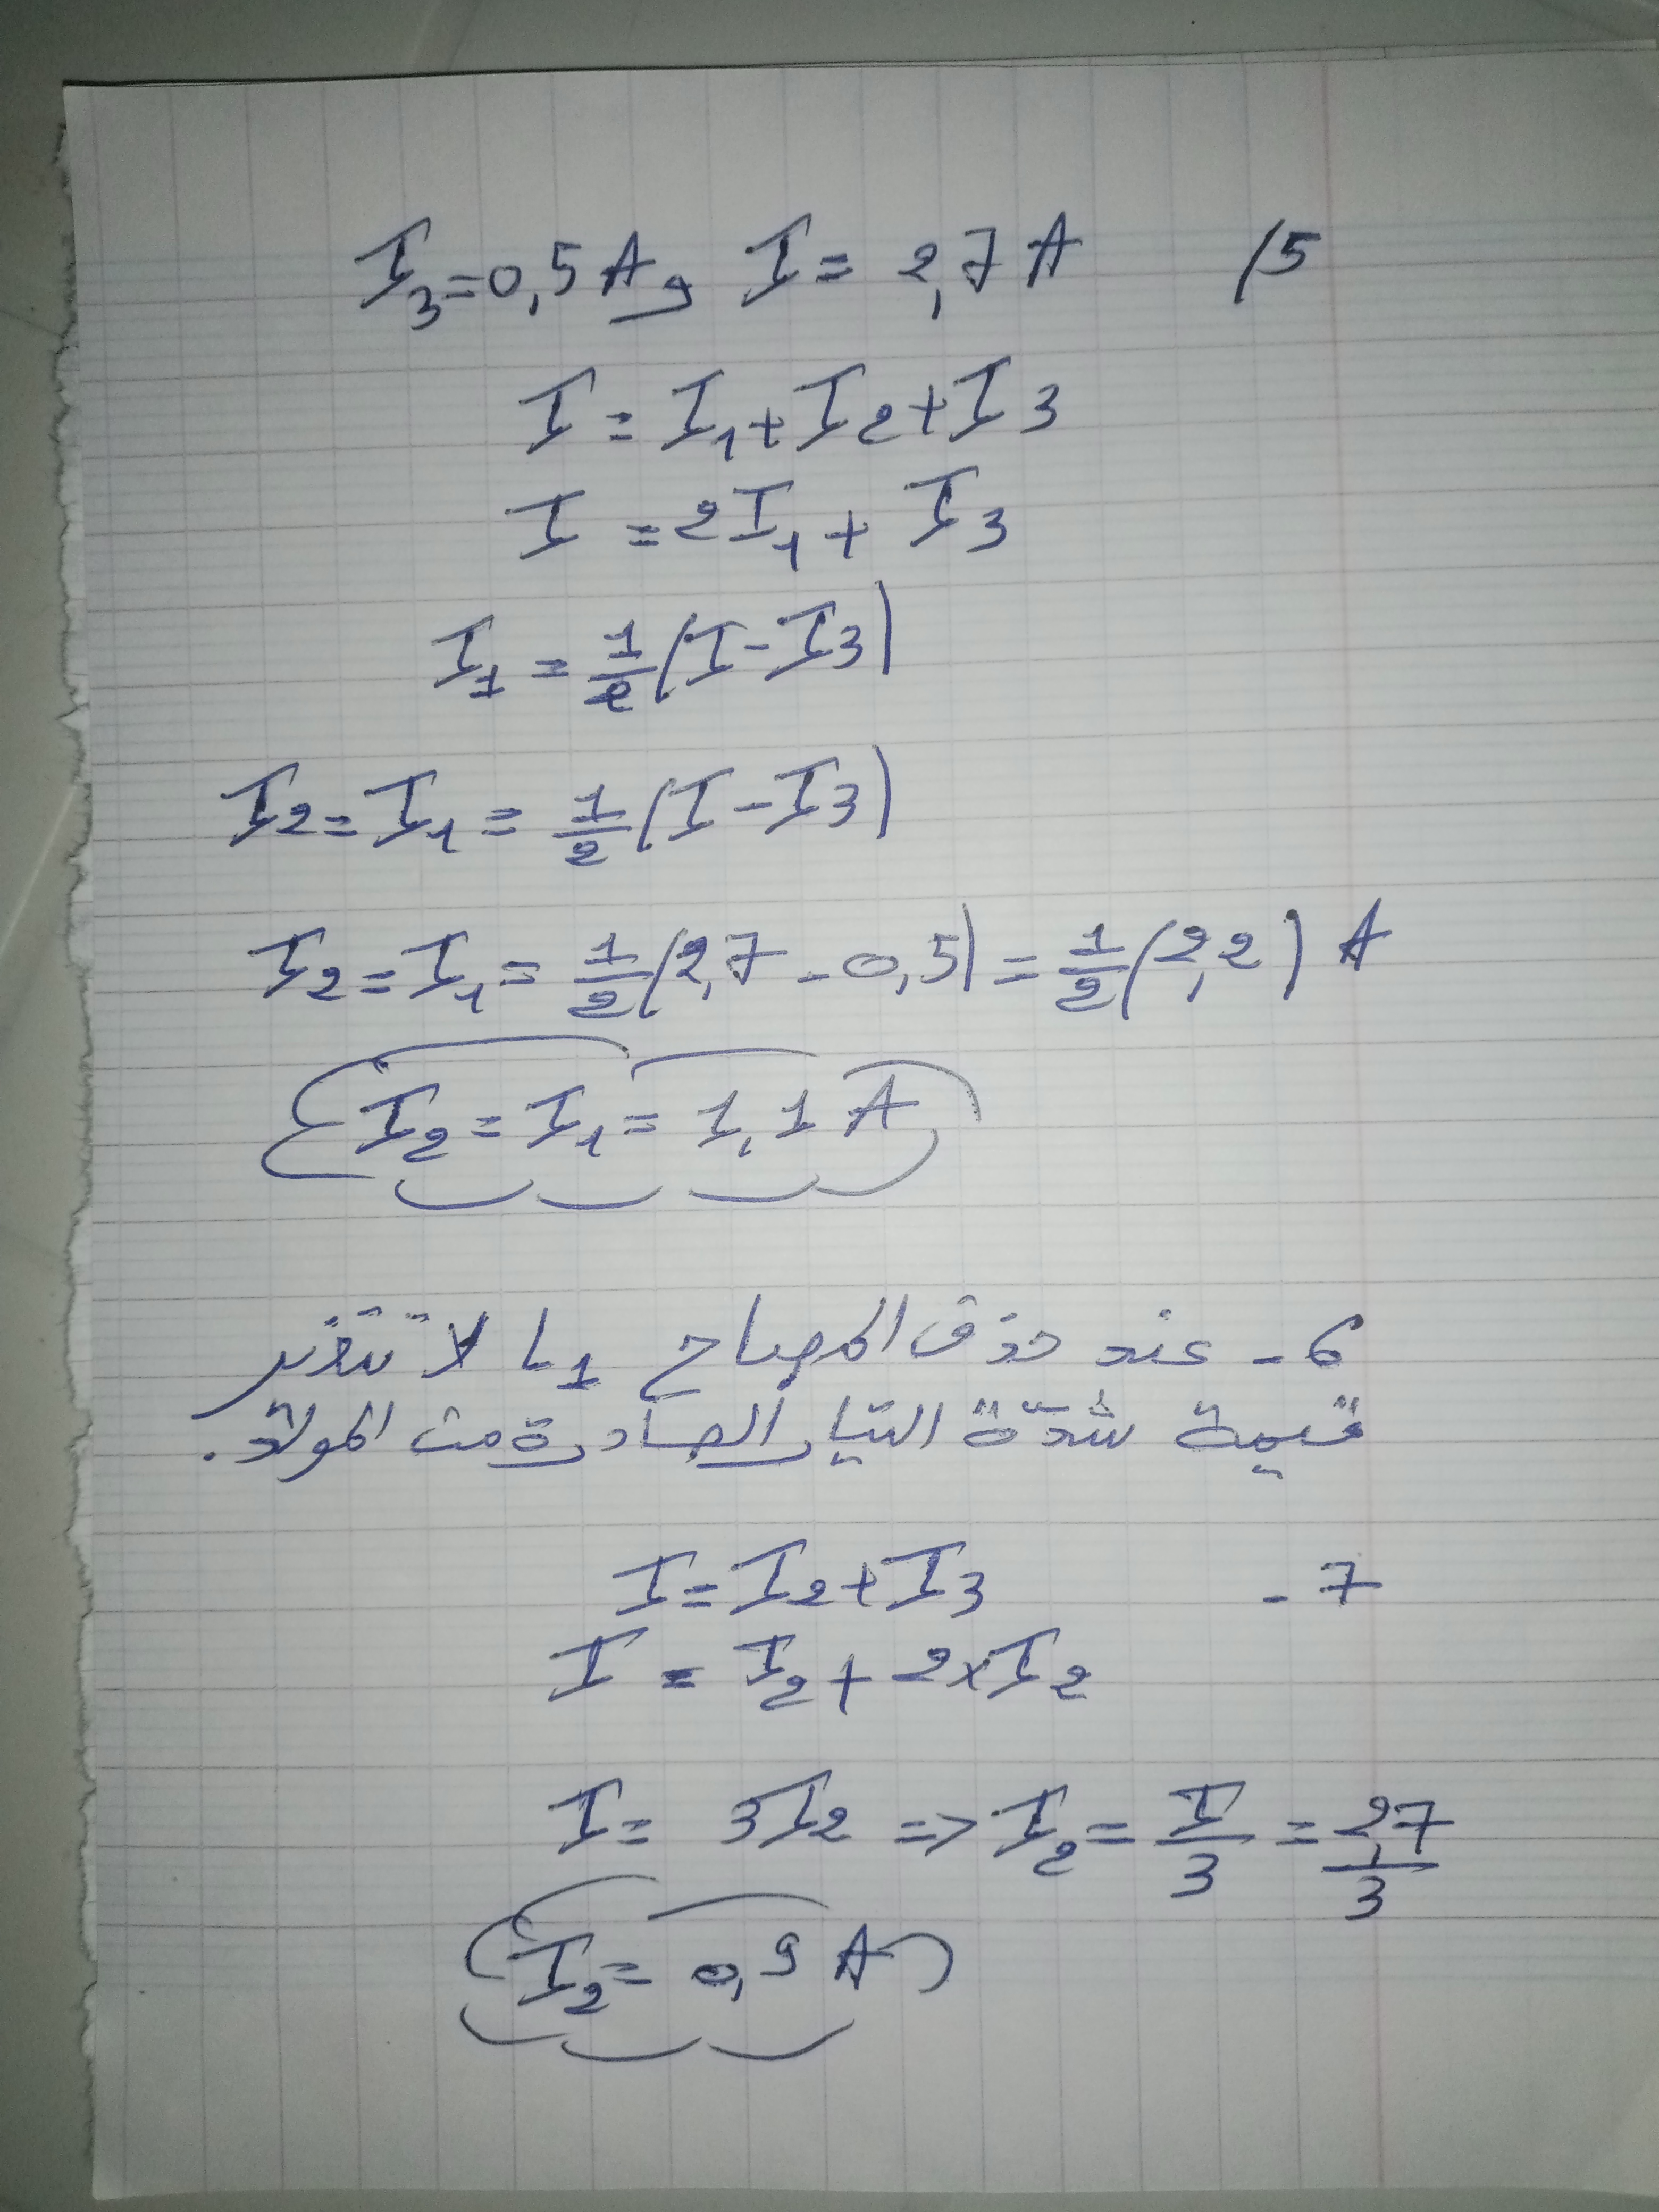 5/ I = 2,7 A و I3 = 0,5 A
I = I1 + I2 + I3
I = 2I1 + I3
I1 = 1/2 (I - I3)
I2 = I1 = 1/2 (I - I3)
I2 = I1 = 1/2 (2,7 - 0,5) = 1/2 (2,2) A
I2 = I1 = 1,1 A
6- عند حذف المصباح L1 لا تتغير
قيمة شدّة التيار الصادرة من المولد.
7- I = I2 + I3
I = I2 + 2xI2
I = 3I2 => I2 = I/3 = 2,7/3
I2 = 0,9 A